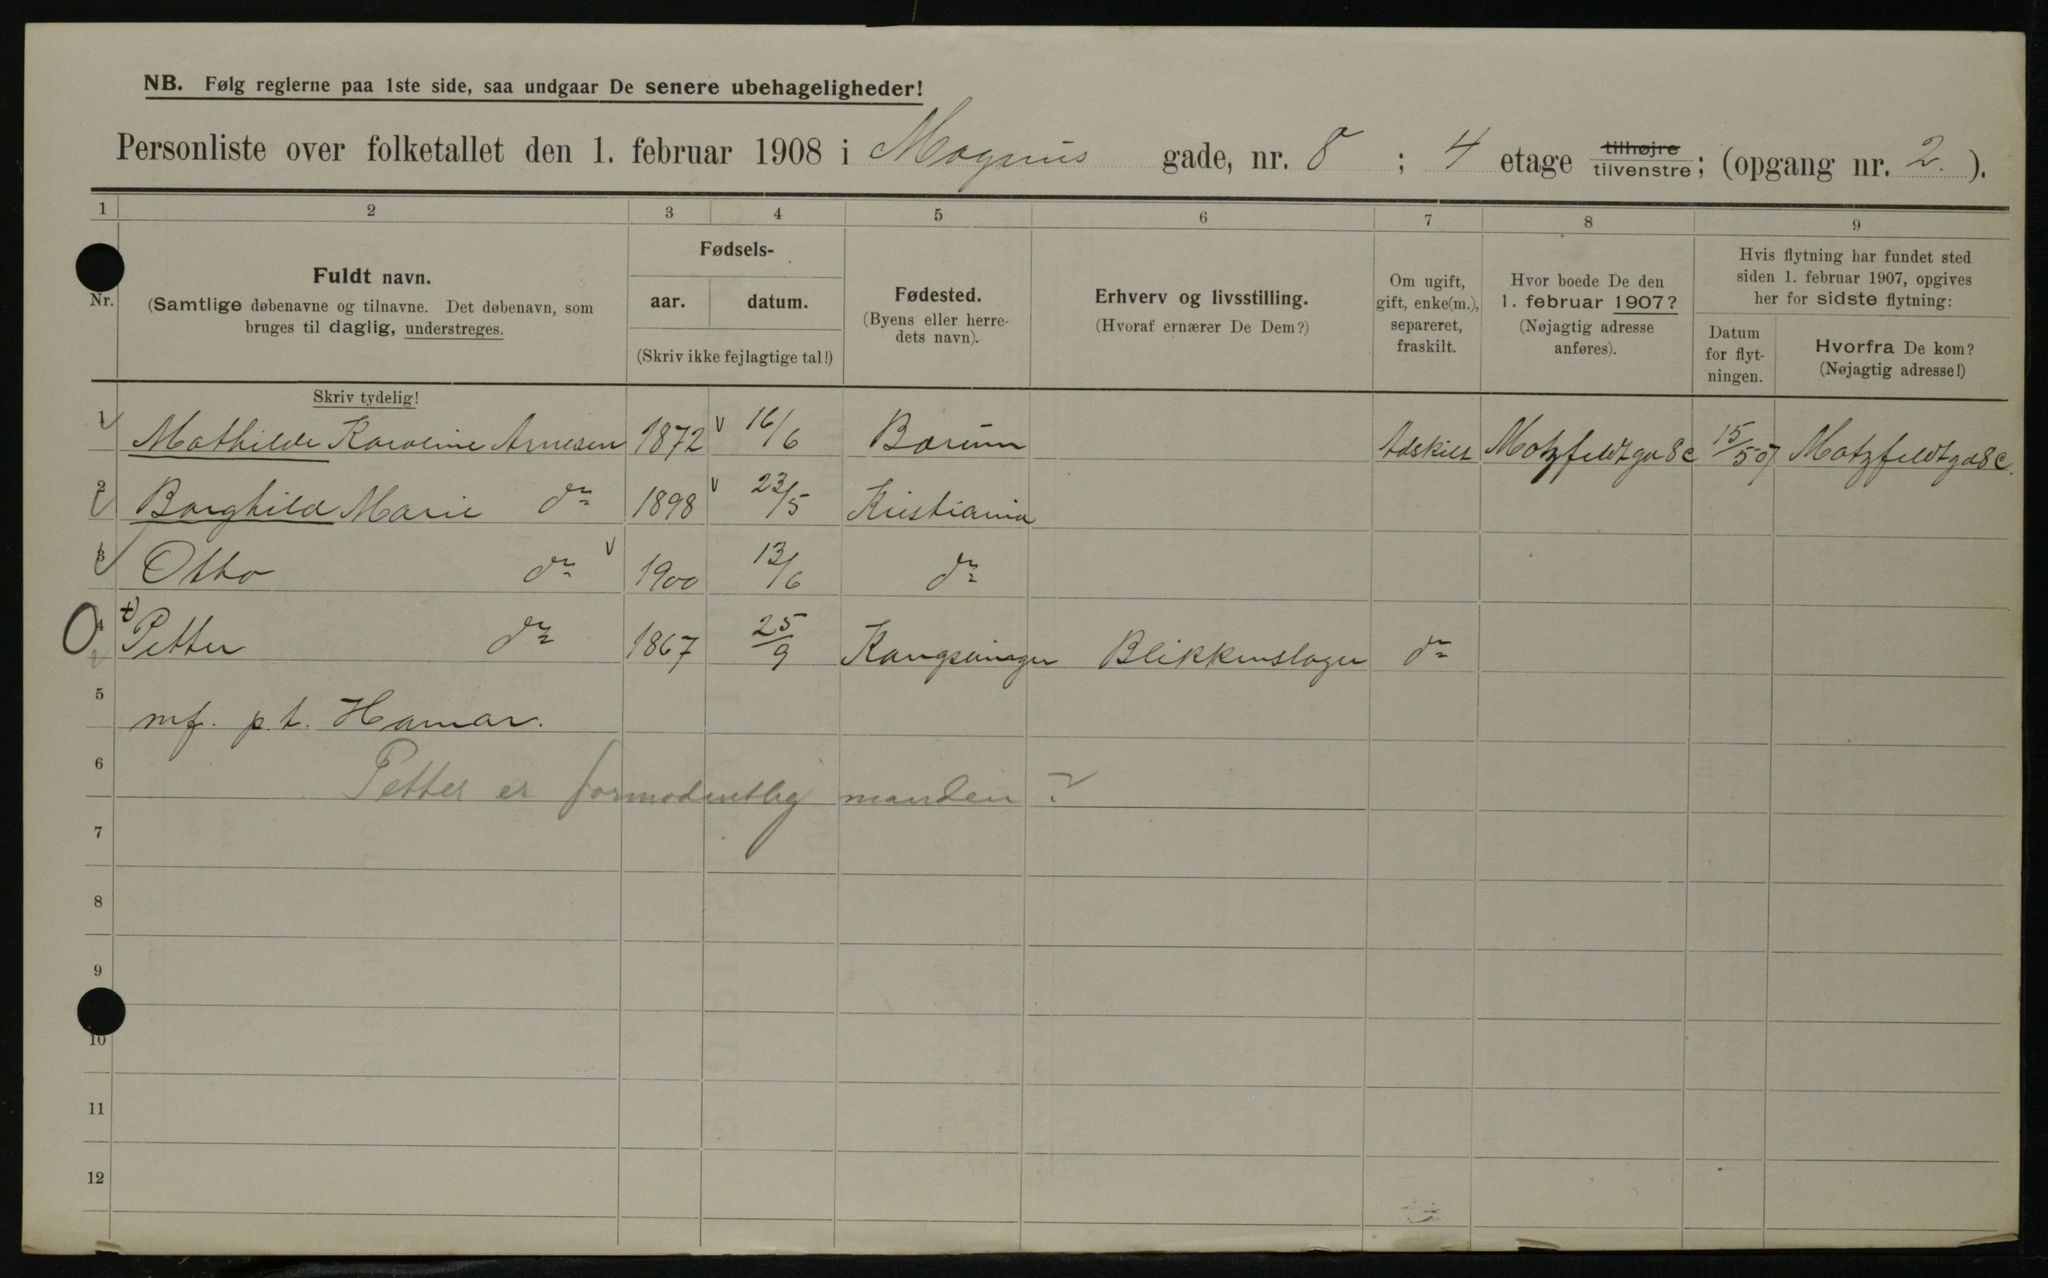 NB. Følg reglerne paa 1ste side, saa undgaar De senere ubehageligheder!
Personliste over folketallet den 1. februar 1908 i Magnus gade, nr. 8 ; 4 etage tilhøjre tilvenstre; (opgang nr. 2. ).
1 2 3 4 5 6 7 8 9
Nr.
Fuldt navn.
(Samtlige døbenavne og tilnavne. Det døbenavn, som
bruges til daglig, understreges.
Skriv tydelig!
Fødsels-
aar. datum.
(Skriv ikke fejlagtige tal!)
Fødested.
(Byens eller herre-
dets navn).
Erhverv og livsstilling.
(Hvoraf ernærer De Dem?)
Om ugift,
gift, enke(m.),
separeret,
fraskilt.
Hvor boede De den
1. februar 1907?
(Nøjagtig adresse
anføres).
Hvis flytning har fundet sted
siden 1. februar 1907, opgives
her for sidste flytning:
Datum
for flyt-
ningen.
Hvorfra De kom?
(Nøjagtig adresse!)
1 Mathilde Karoline Arnesen 1872 16/6 Bærum Adskilt Motzfeldtga 8c 15/5 07 Motzfeldtga 8c.
2 Borghild Marie do 1898 23/5 Kristiania
3 Otto do 1900 13/6 do
4 Petter do 1867 25/9 Kongsvinger Blikkenslager do
5 mf. p.t. Hamar.
6 Petter er formodentlig manden?
7
8
9
10
11
12